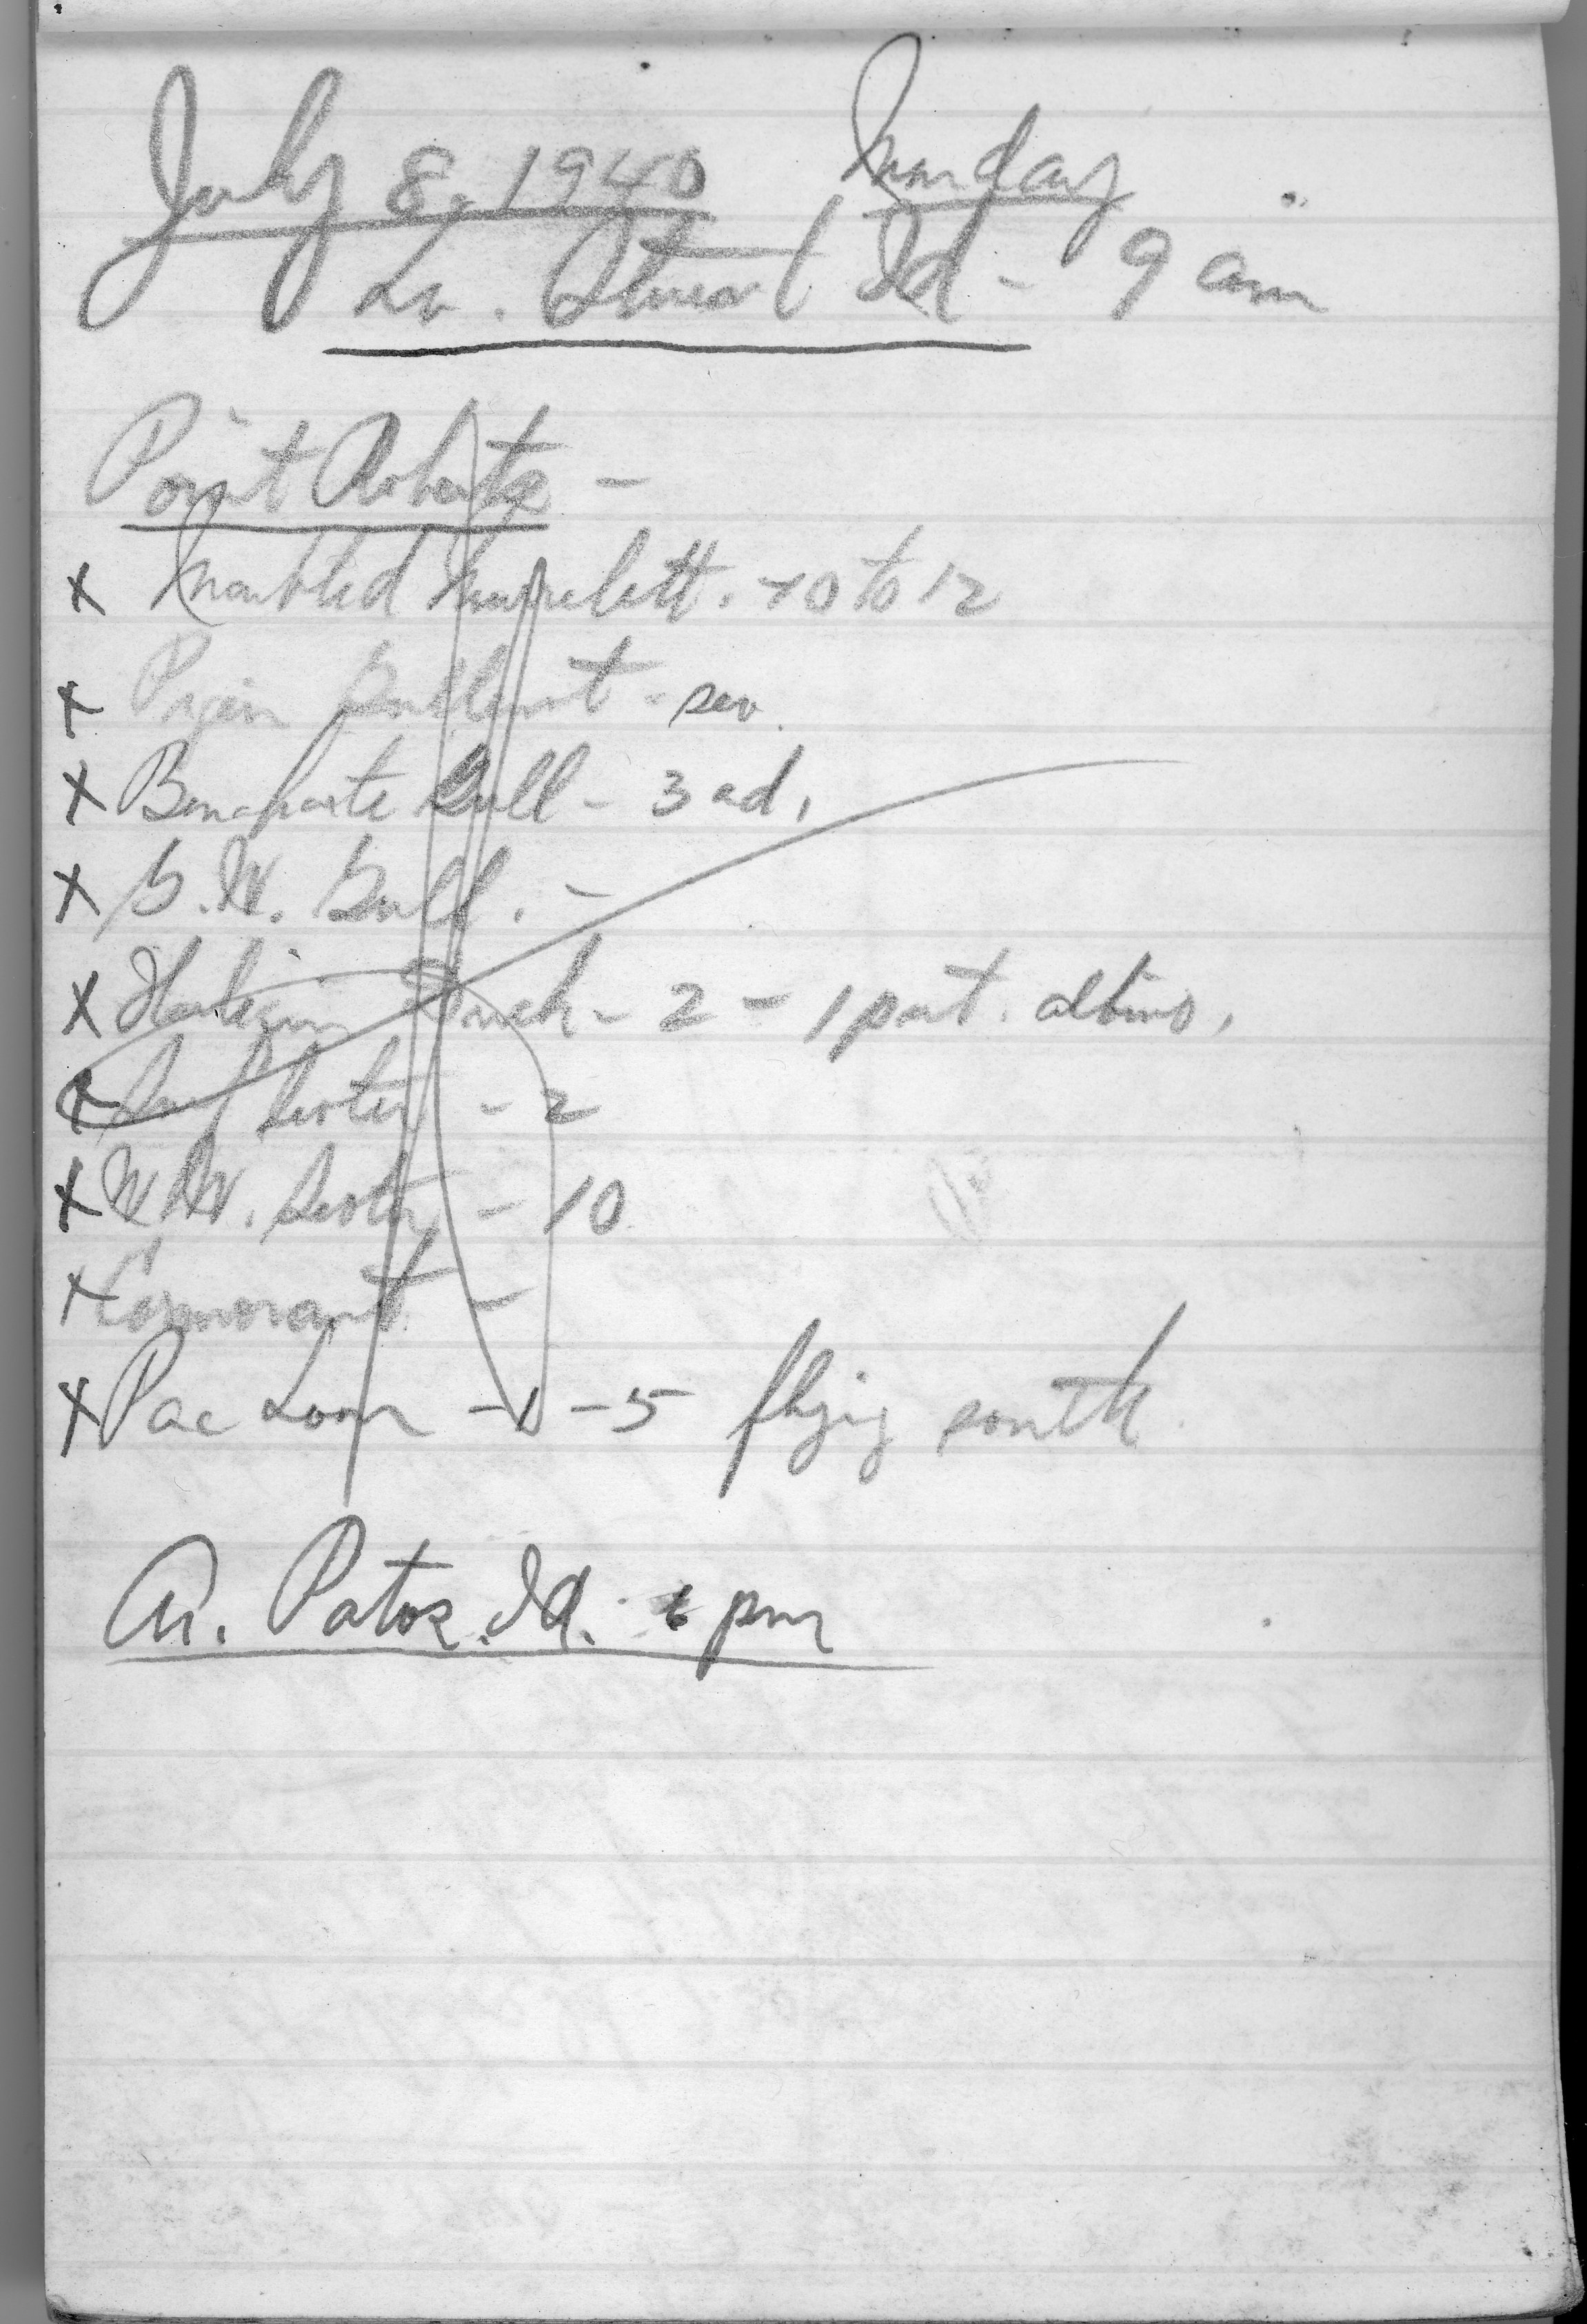 July 8, 1940 Monday
Lv. Stuart Id - 9 am
Point Roberts -
x Marbled Murrelett. 10 to 12
x Pigeon Guillemot - sev.
x Bonaparte Gull - 3 ad.
x G.W. Gull. -
x Harlequin Duck - 2 - 1 part. albino.
x Surf Scoter - 2
x W.W. Scoter - 10
x Cormorant -
x Pac Loon - - 5 flying south.
Ar. Patos Id. 6 pm